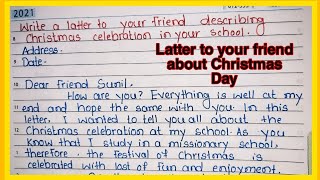 2021
Write a latter to your friend describing
Christmas celebration in your school.
Address.
9 Date.
Latter to your friend
about Christmas
Day
10 Dear friend Sunil.
How are you? Everything is well at my
11 end and hope the same with you. In this
letter, I wanted to tell you all about the
12 Christmas celebration at my school. As you
know that I study in a missionary school,
1 therefore, the festival of Christmas is
celebrated with lost of fun and enjoyment.